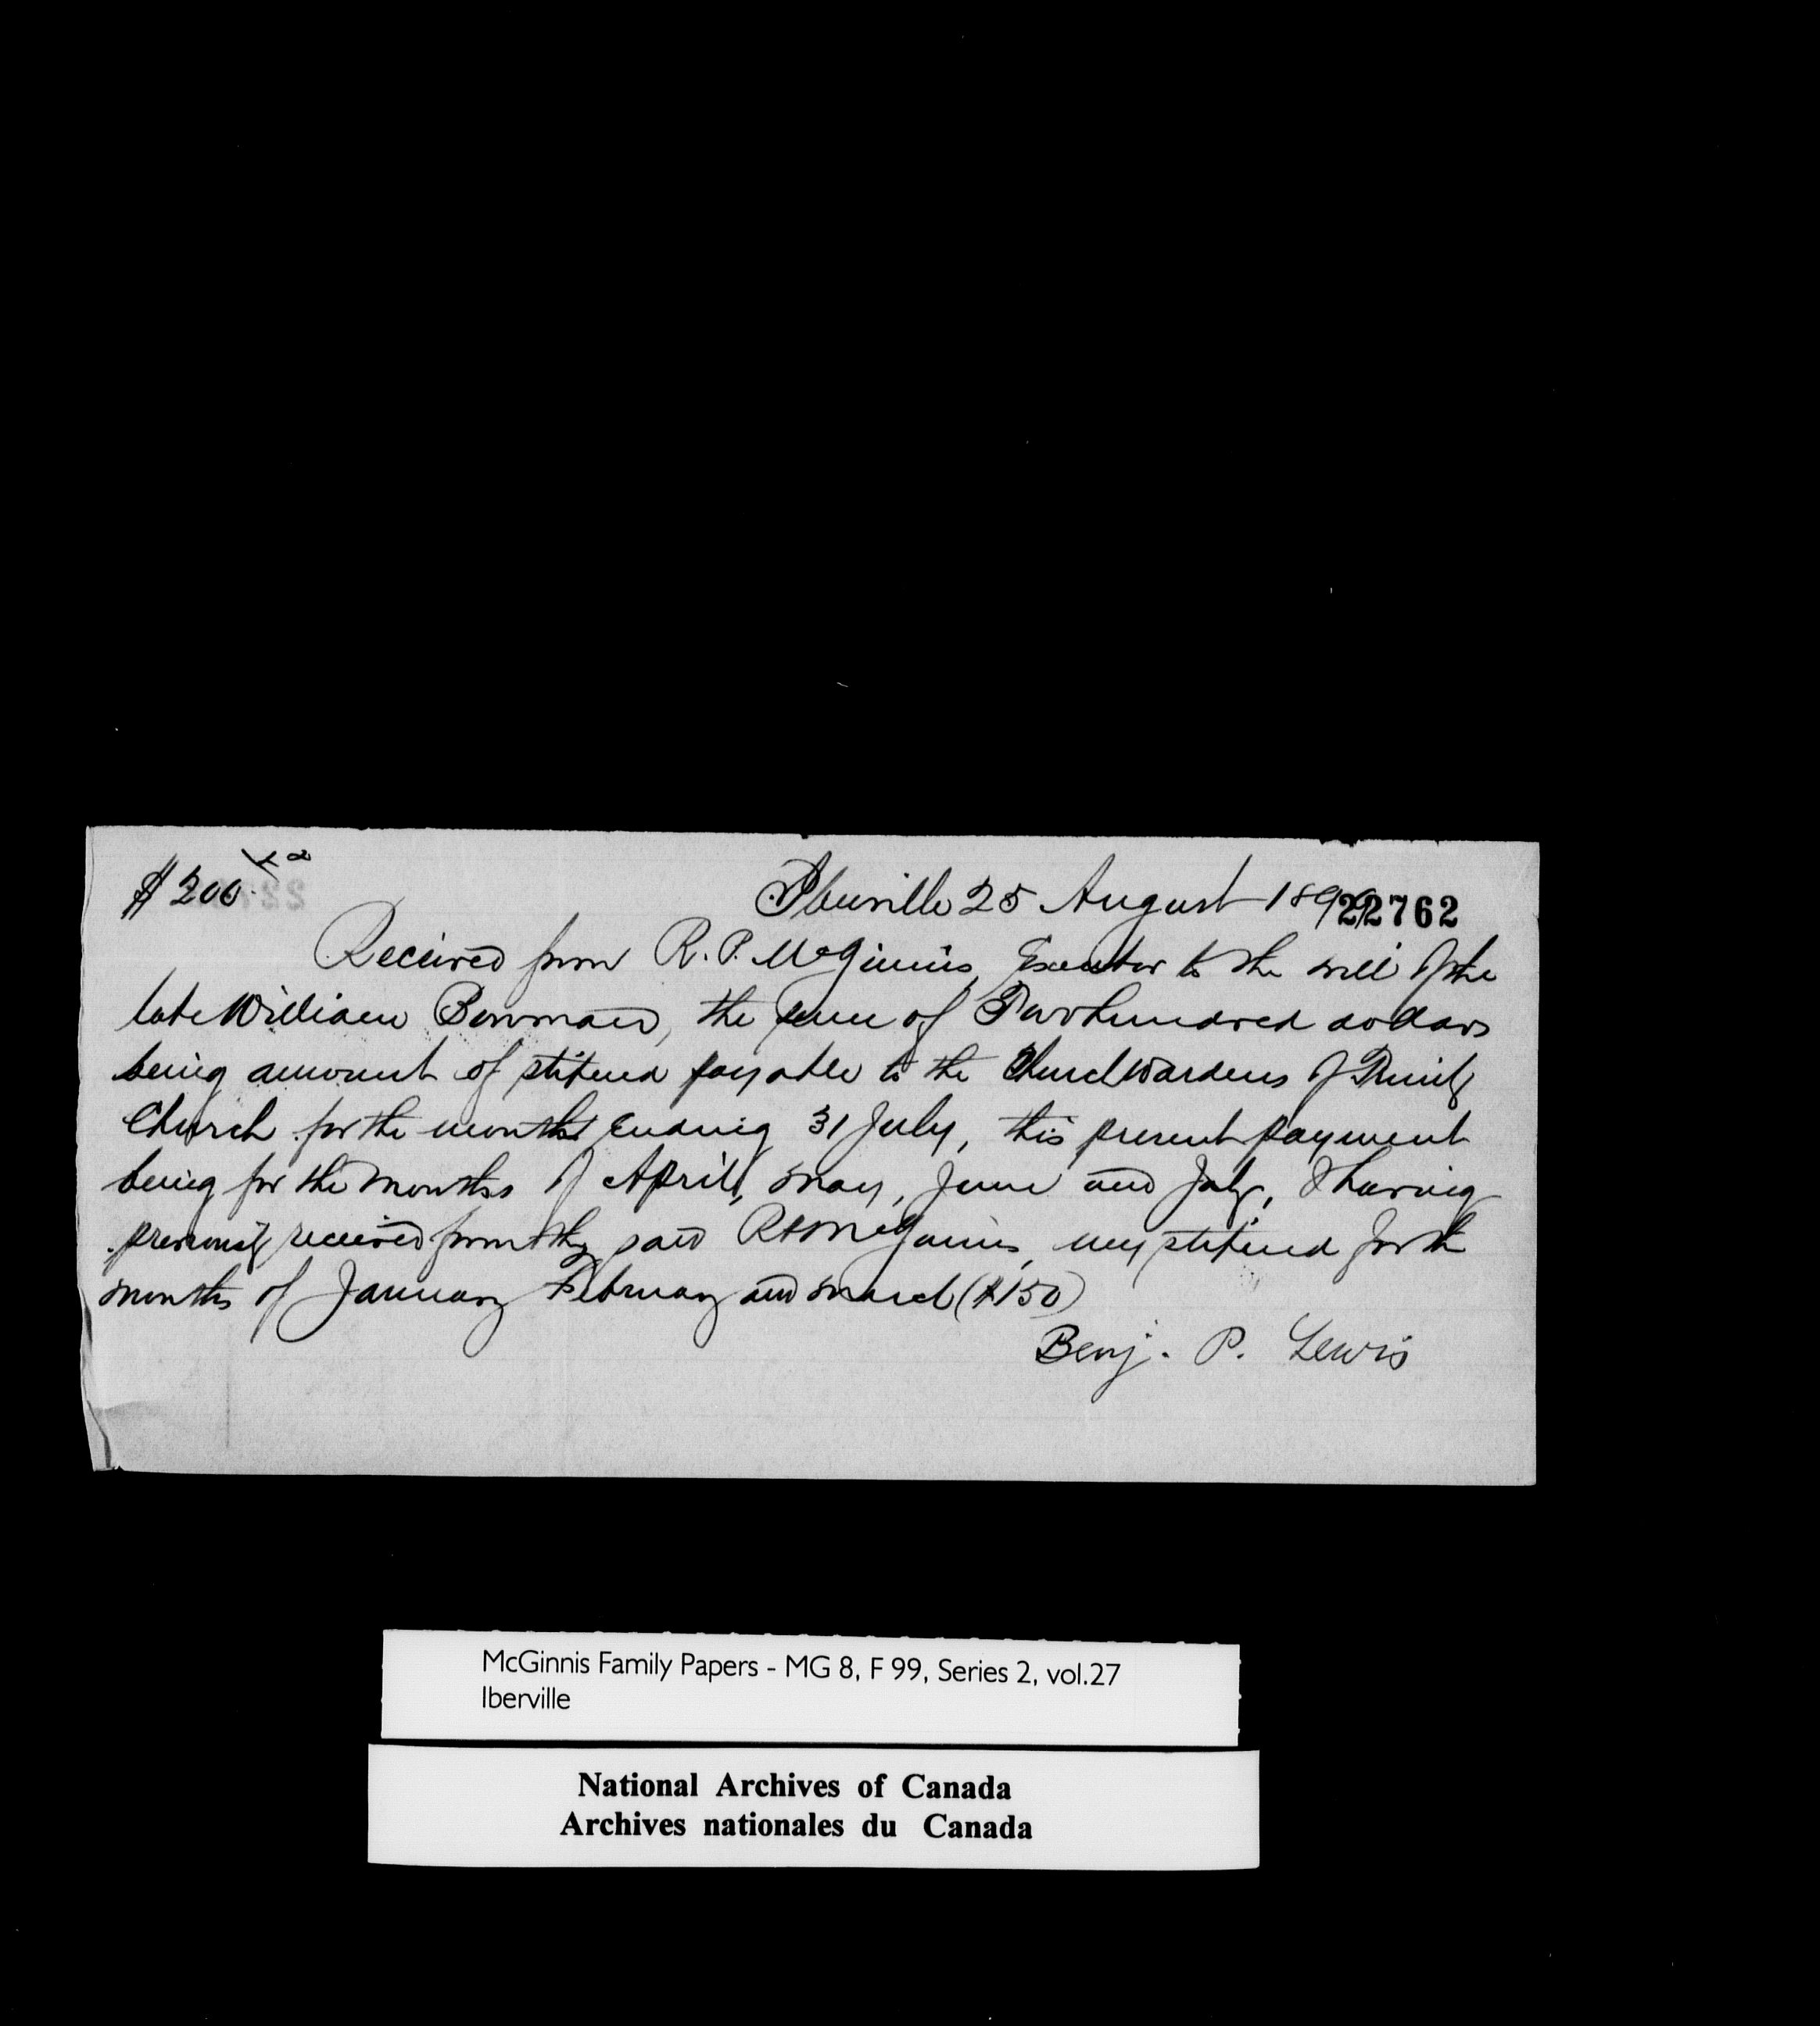 $200.
Iberville 25 August 1899
22762
Received from R. P. McGinnis, Executor to the will of the
late William Bowman, the sum of Two hundred dollars
being amount of stipend payable to the Churchwardens of Trinity
Church for the months ending 31 July, this present payment
being for the months of April, May, June and July, I having
previously received from the said R P McGinnis, my stipend for the
months of January February and March ($150)
Benj. P. Lewis
McGinnis Family Papers - MG 8, F 99, Series 2, vol.27
Iberville
National Archives of Canada
Archives nationales du Canada